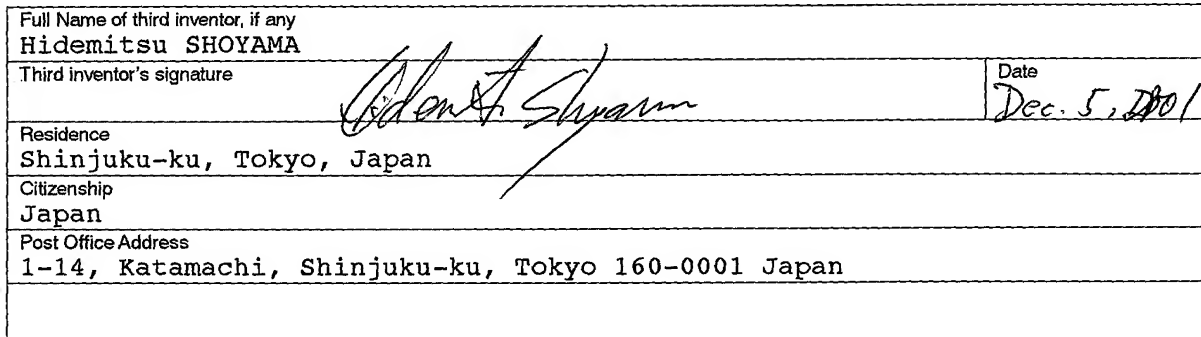 Full Name of third inventor, if any
Hidemitsu SHOYAMA
Third inventor's signature
Date
Dec. 5, 2001
Residence
Shinjuku-ku, Tokyo, Japan
Citizenship
Japan
Post Office Address
1-14, Katamachi, Shinjuku-ku, Tokyo 160-0001 Japan